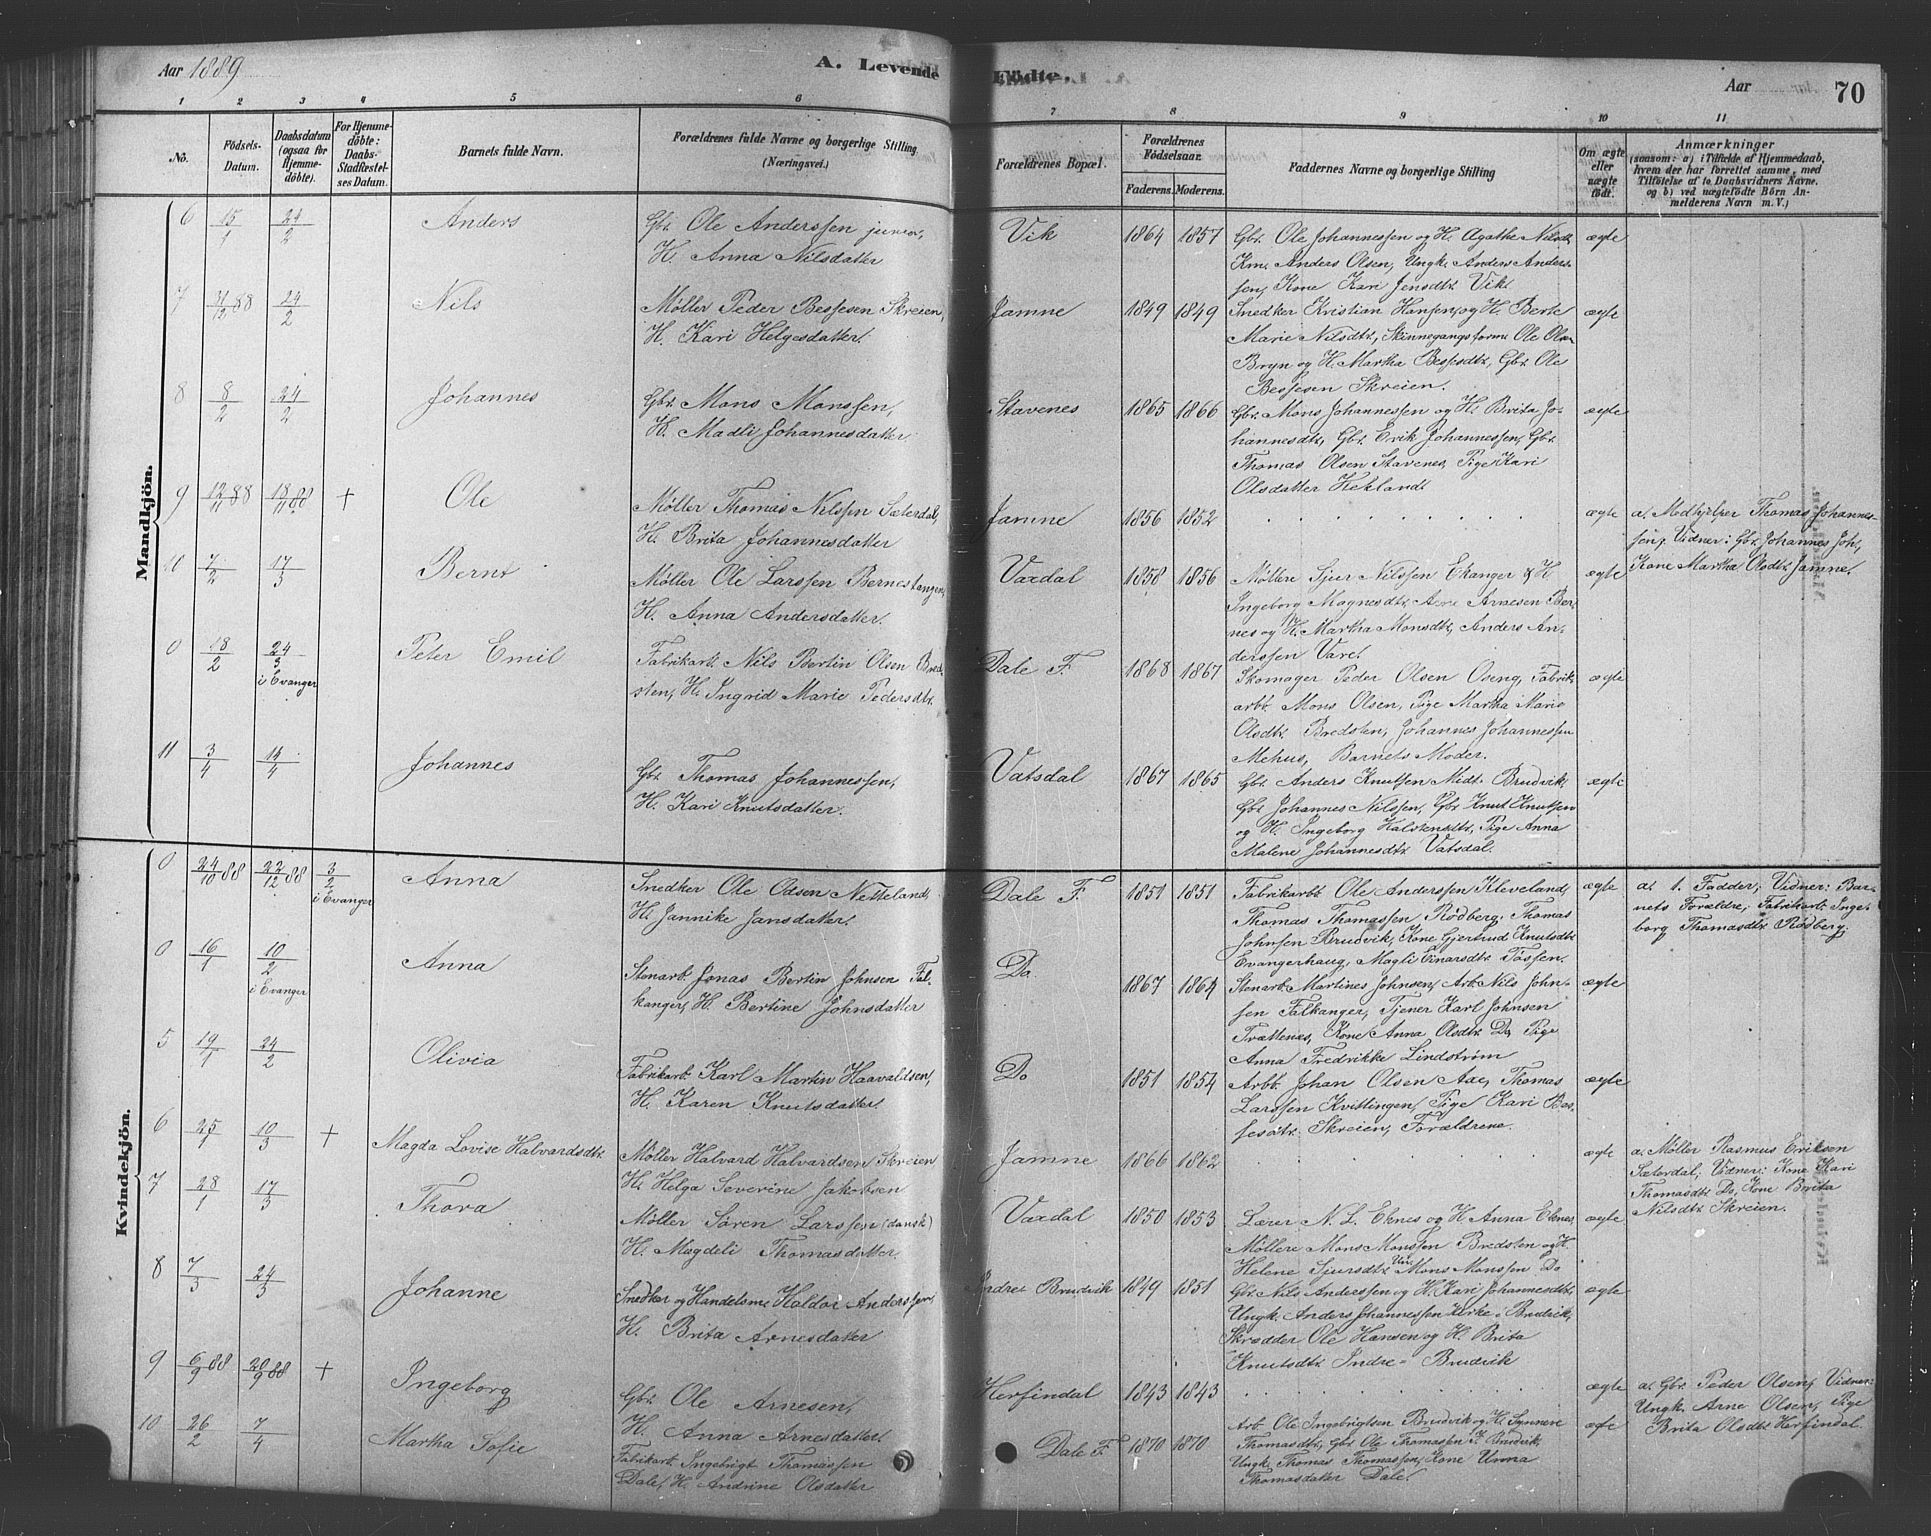 Aar 1889
A. Levende
Födte.
Aar
70
1 2 3 4 5 6 7 8 9 10 11
No.
Födsels-
Datum.
Daabsdatum
(ogsaa for
Hjemme-
döbte).
For Hjemme-
döbte:
Daabs-
Stadfæstel-
ses Datum.
Barnets fulde Navn.
Forældrenes fulde Navne og borgerlige Stilling
(Næringsvei.)
Forældrenes Bopæl.
Forældrenes
Födselsaar.
Faderens. Moderens.
Faddernes Navne og borgerlige Stilling
Om ægte
eller
uægte
födt.
Anmærkninger
(saasom: a) i Tilfælde af Hjemmedaab,
hvem der har forrettet samme, med
Tilföielse af to Daabsvidners Navne.
og b) ved uægtefödte Börn An-
melderens Navn m. V.)
Mandkjön.
6 15/1 24/2 Anders
Gbr. Ole Anderssen junior,
H. Anna Nilsdatter
Vik 1864 1857
Gbr. Ole Johannessen og H. Agathe Nilsdt,
Km. Anders Olsen, Ungk. Anders Anders-
sen, Kone Kari Jensdtr Vik.
ægte
7 31/12 88 24/2 Nils
Møller Peder Bessesen Skreien,
H. Kari Helgesdatter.
Jamne 1849 1849
Snedker Kristian Hansen, og H. Berte
Marie Nilsdtr, Skinnegangsform. Ole Olsn
Bryn og H. Martha Bessesdtr, Gbr. Ole
Bessesen Skreien.
ægte
8 8/2 24/2 Johannes
Gbr. Mons Monssen,
H. Madli Johannesdatter.
Stavenes 1865 1866
Gbr. Mons Johannessen og H. Brita Jo-
hannesdtr, Gbr. Erik Johannessen, Gbr.
Thomas Olsen Stavenes, Pige Kari
Olsdatter Hekland.
ægte
9 12/11 88 18/11 88 + Ole
Møller Thomas Nilssen Sæterdal,
H. Brita Johannesdatter
Jamne 1856 1852
ægte
a. Medhjelper Thomas Johannes-
sen, Vidner: Gbr. Johannes Joh.,
Kone Martha Olsdtr. Jamne.
10 7/2 17/3 Bernt
Møller Ole Larssen Bernestangen,
H. Anna Andersdatter.
Vaxdal 1858 1856
Møllere Sjur Nilssen Ekanger & H
Ingeborg Magnesdtr, Arne Arnesen Ber-
nes og H. Martha Monsdtr, Anders An-
derssen Vare.
ægte
0 18/2 24/3 i Evanger Peter Emil
Fabrikarb. Nils Bertin Olsen Bred-
sten, H. Ingrid Marie Pedersdtr.
Dale F. 1868 1867
Skomager Peder Olsen Oseng, Fabrik-
arb. Mons Olsen, Pige Martha Marie
Olsdtr Bredsten, Johannes Johannessen
Mehus, Barnets Moder.
ægte
11 3/4 14/4 Johannes
Gbr. Thomas Johannessen,
H. Kari Knutsdatter.
Vatsdal 1867 1865
Gbr. Anders Knutsen Midt-Brudvik,
Gbr. Johannes Nilssen, Gbr Knut Knutsen
og H. Ingeborg Halstensdtr, Pige Anna
Malene Johannesdtr Vatsdal.
ægte
Kvindekjön.
0 24/10 88 22/12 88 3/2 i Evanger Anna
Snedker Ole Odsen Netteland,
H. Jannike Jansdatter.
Dale F. 1851 1851
Fabrikarb. Ole Anderssen Kleveland,
Thomas Thomassen Rødberg, Thomas
Johnsen Brudvik, Kone Gjertrud Knutsdtr
Evangerhaug, Magli Einarsdtr Fossen.
ægte
a. 1. Fadder; Vidner: Bar-
nets Forældre, Fabrikarb. Inge-
borg Thomasdtr Rødberg.
0 16/1 10/2 i Evanger Anna
Stenarb. Jonas Bertin Johnsen Fal-
kanger, H. Bertine Johnsdatter
Do 1867 1864
Stenarb. Martines Johnsen, Arb. Nils John-
sen Falkanger, Tjener Karl Johnsen
Trættenes, Kone Anna Olsdtr Do, Pige
Anna Fredrikke Lindstrøm
ægte
5 19/1 24/2 Olivia
Fabrikarb. Karl Martin Haavaldsen,
H. Karen Knutsdatter.
Do 1851 1854
Arb. Johan Olsen Aae, Thomas
Larssen Kvittingen, Pige Kari Bes-
sesdtr. Skreien, Forældrene.
ægte
6 25/1 10/3 + Magda Lovise Halvardsdtr
Møller Halvard Halvardsen Skreien
H. Helga Severine Jakobsen
Jamne 1866 1862
ægte
a. Møller Rasmus Eriksen
Sæterdal; Vidner: Kone Kari
Thomasdtr Do, Kone Brita
Nilsdtr Skreien.
7 28/1 17/3 Thora
Møller Søren Larssen (dansk)
H. Magdeli Thomasdatter
Vaxdal 1850 1853
Lærer N. L. Eknes og H. Anna Eknes,
Møllere Mons Monssen Bredsten og H.
Helene Sjursdtr, Mons Monssen Do
ægte
8 7/3 24/3 Johanne
Snedker og Handelsm. Haldor Anderssen,
H. Brita Arnesdatter
Indre Brudvik 1849 1851
Gbr. Nils Anderssen og H. Kari Johannesdtr,
Ungk. Anders Johannessen Kirke-Brudvik,
Skrædder Ole Hansen og H. Brita
Knutsdtr Indre-Brudvik
ægte
9 6/9 88 20/9 88 + Ingeborg
Gbr. Ole Arnesen,
H. Anna Arnesdatter.
Herfindal 1843 1843
ægte
a. Gbr. Peder Olsen, Vidner:
Ungk. Arne Olsen, Pige
Brita Olsdtr Herfindal.
10 26/2 7/4 Martha Sofie
Fabrikarb. Ingebrigt Thomassen
Dale, H. Andrine Olsdatter
Dale F. 1870 1870
Arb. Ole Ingebrigtsen Brudvik og H. Synneve
Thomasdtr, Gbr. Ole Thomassen I. Brudvik,
Ungk. Thomas Thomassen, Kone Unna
Thomasdatter Dale.
ægte